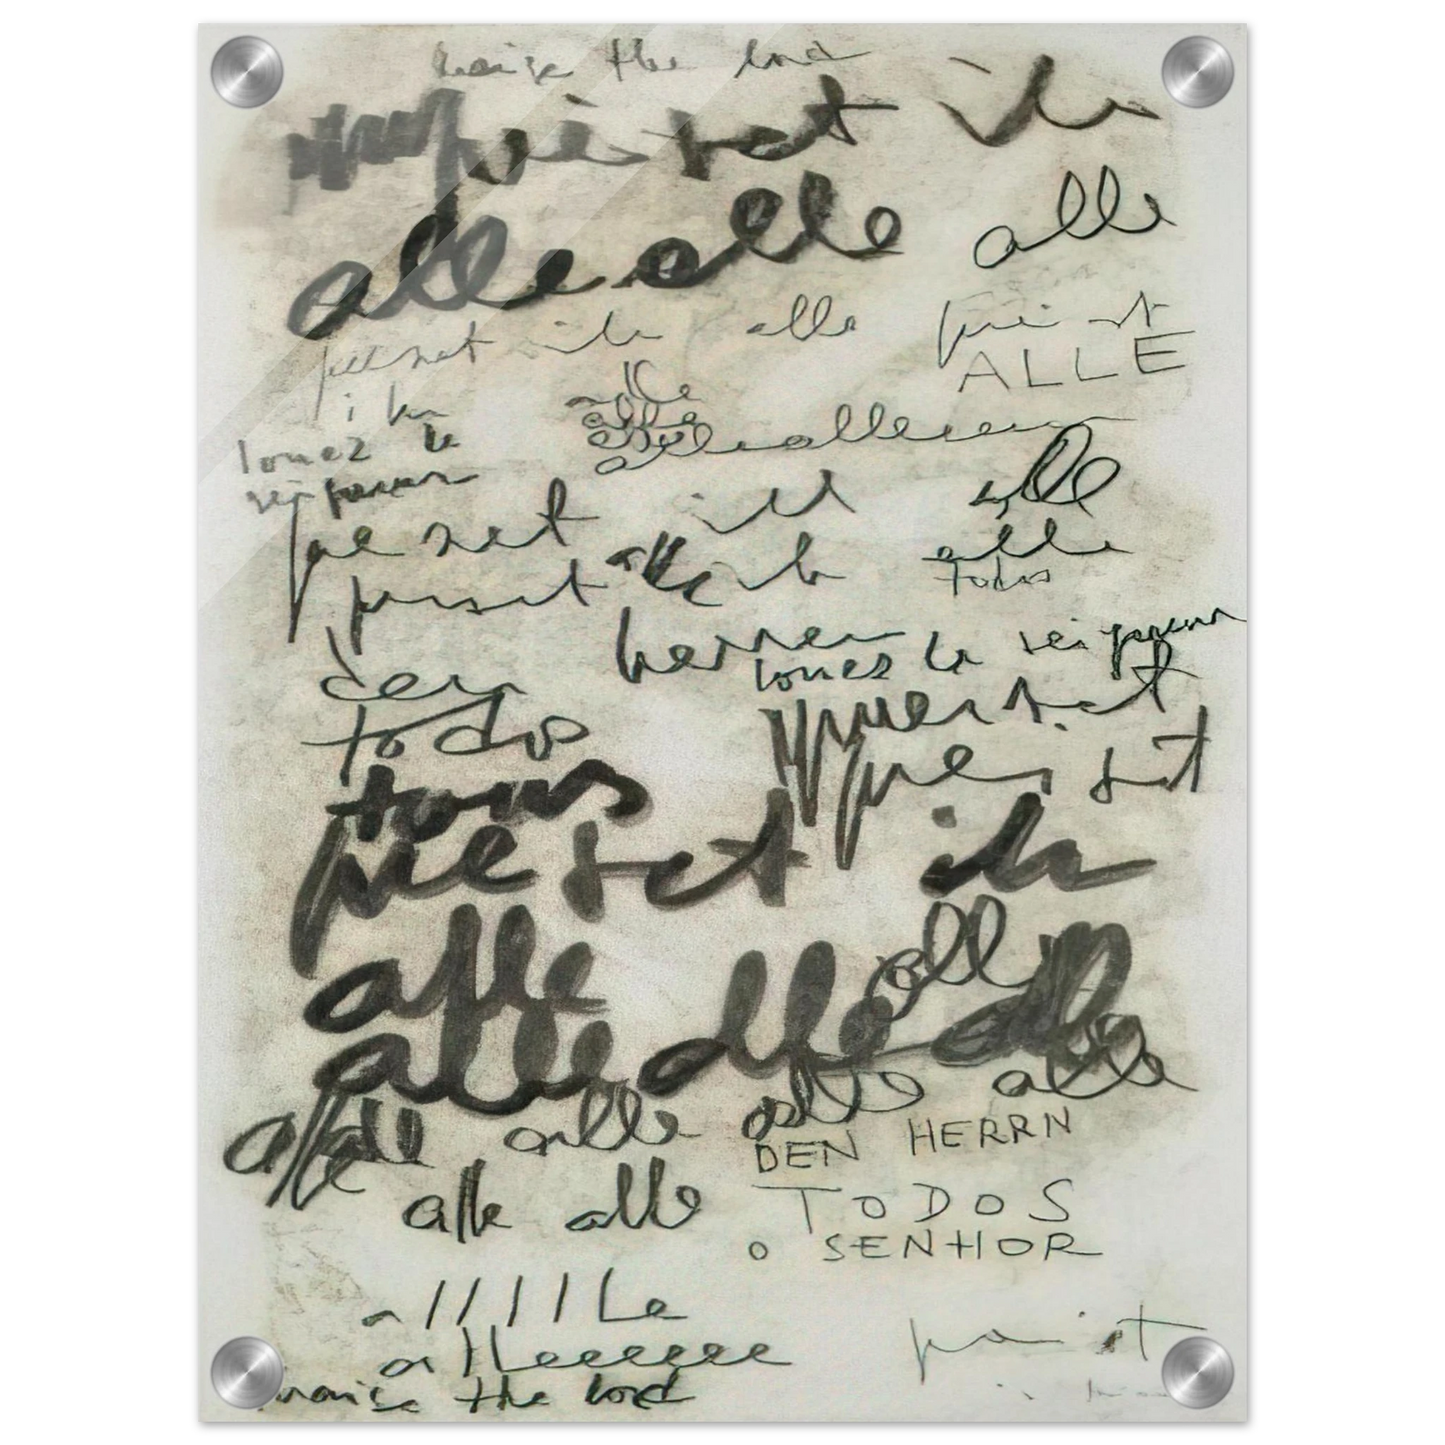 praise the lord
preiset ihn
alle alle alle
preiset ihn alle preist
ALLE
ihn alle
louez le alle
seigneur allealleeeee
preiset ihn alle
preiset alle ihn alle
todos
herren louez le seigneur
den preiset
todos preiset
tous
preiset ihn
alle alle
alle alle alle
alle alle alle alle
DEN HERRN
alle alle TODOS
O SENHOR
allllle
alleeeeeee preist
praise the lord